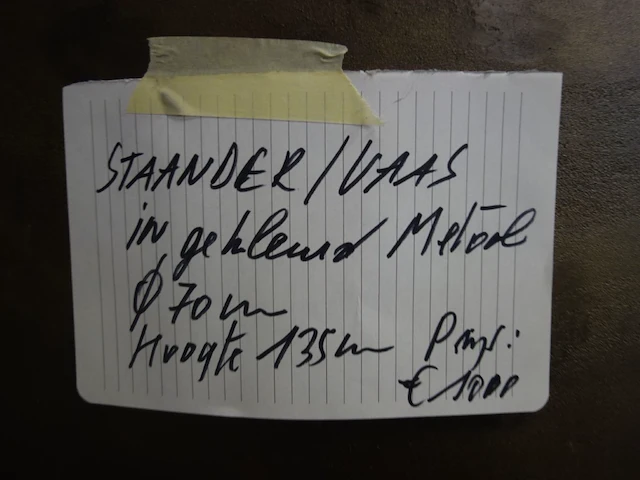 STAANDER/VAAS
in gekleurd Metaal
Ø 70 cm
Hoogte 135 cm
Prijs:
€ 1000